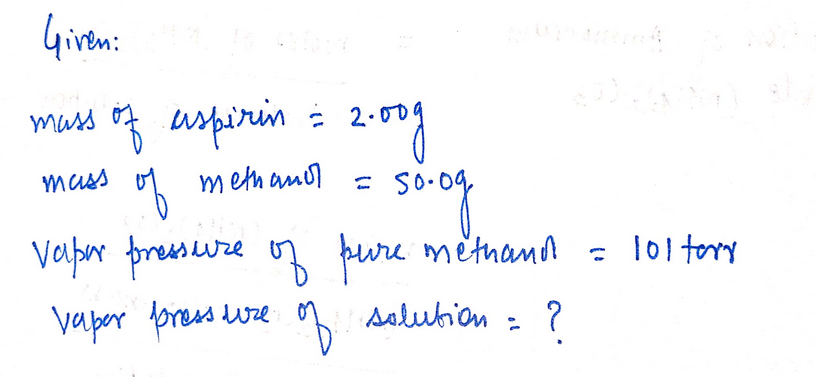 Given:
mass of aspirin = 2.00g
mass of methanol = 50.0g
Vapor pressure of pure methanol = 101 torr
Vapor pressure of solution = ?